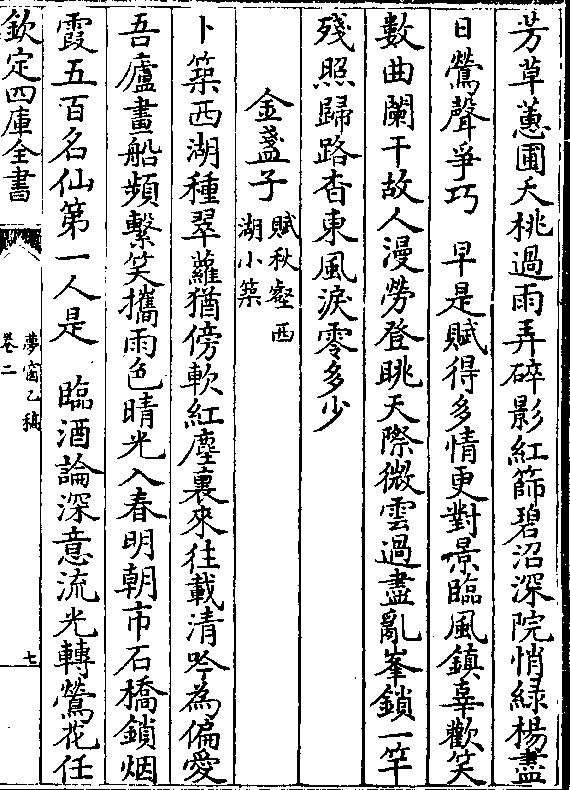 芳草蕙圃夭桃過雨弄碎影紅篩碧沼深院悄緑楊盡
日鶯聲爭巧　早是賦得多情更對景臨風鎮辜歡笑
數曲闌干故人漫勞登眺天際微雲過盡亂峯鎖一竿
殘照歸路杳東風淚零多少
金盞子賦秋壑西
湖小築
卜築西湖種翠蘿猶傍軟紅塵裏來往載清吟為偏愛
吾廬畫船頻繫笑攜雨色晴光入春明朝市石橋鎖烟
霞五百名仙第一人是　臨酒論深意流光轉鶯花任
欽定四庫全書
夢窗乙稿
卷二
七